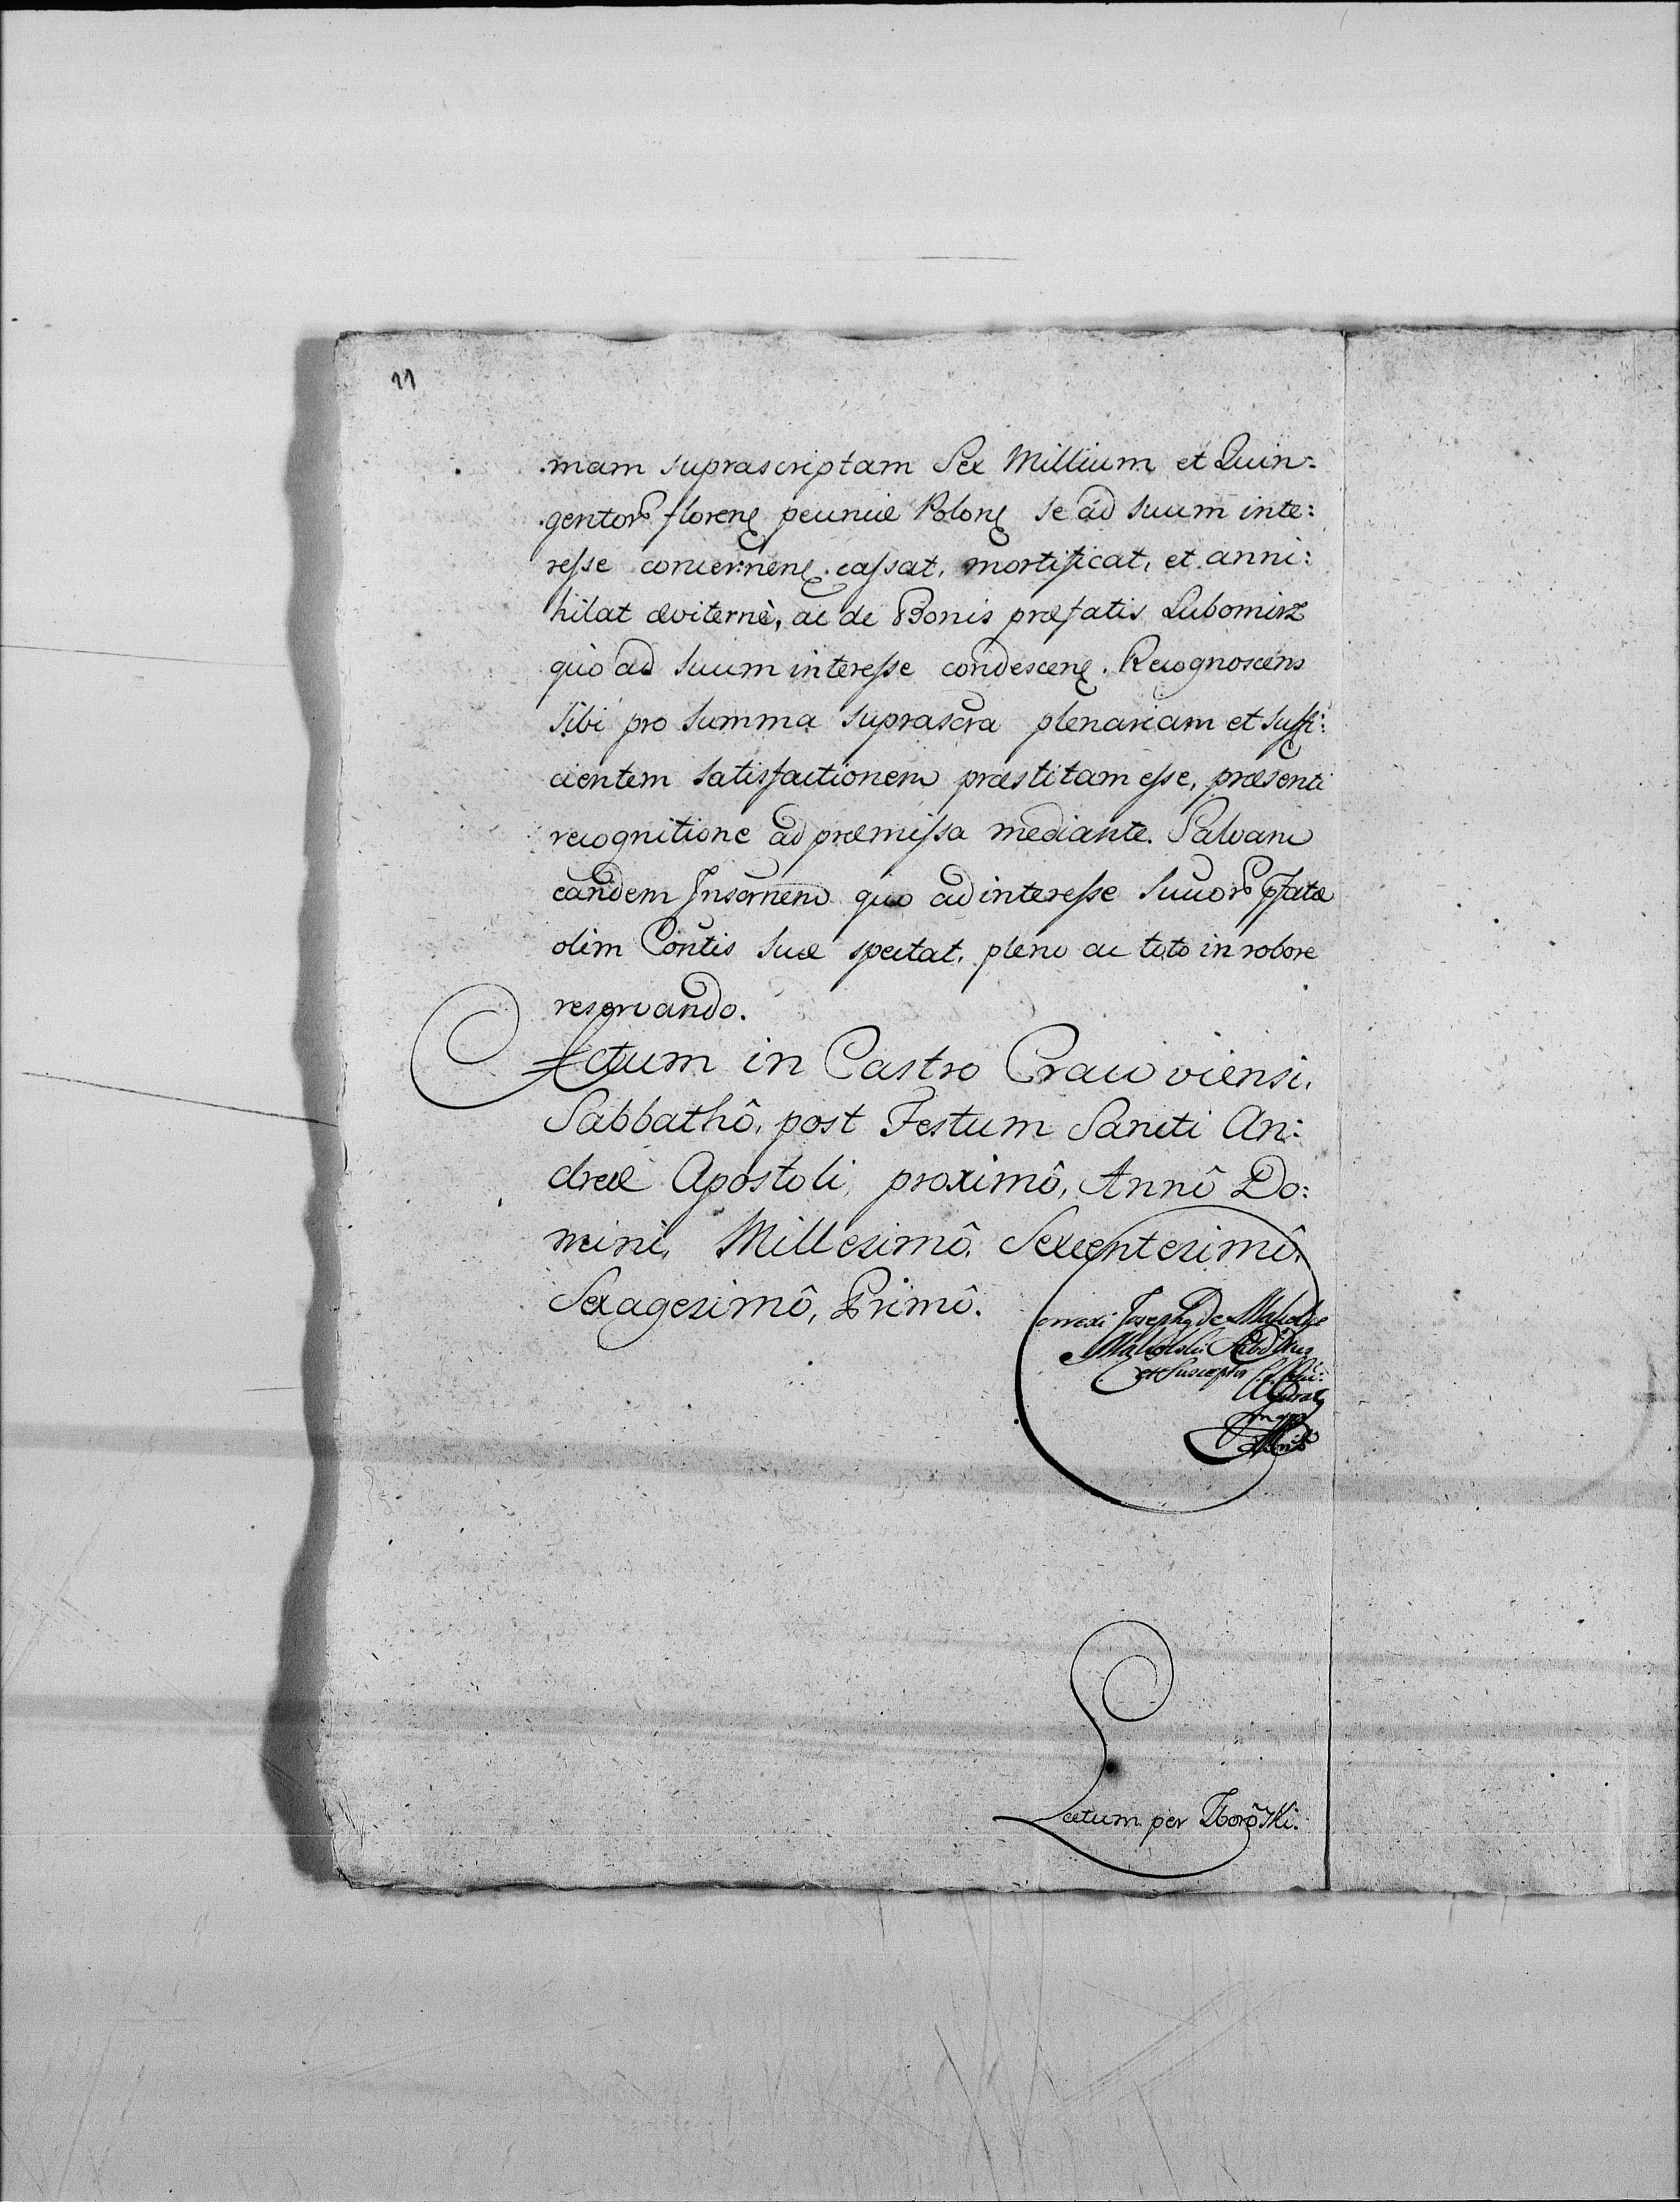 11
mam suprascriptam Sex Millium et Quin:
gentor florenę pecuniæ Polonę se ad suum inte:
resse concernenę cassat, mortificat, et anni:
hilat æviternè, ac de Bonis præfatis Lubomirz
quo ad suum interesse condescenę. Recognoscens
Sibi pro Summa suprascra plenariam et suffi:
cientem satisfactionem præstitam esse, præsenti
recognitione ad præmissa mediante. Salvam
eandem Inscrnem quo ad interesse Suuor pfatæ
olim Contis suæ spectat, pleno ac toto in robore
reservando.
Actum in Castro Cracoviensi,
Sabbathô, post Festum Sancti An:
dreæ Apostoli, proximô, Annô Do:
mini, Millesimô, Sexcentesimô,
Sexagesimô, Primô.
Correxi Josephq De
et Susceptor
mpp
Lectum per